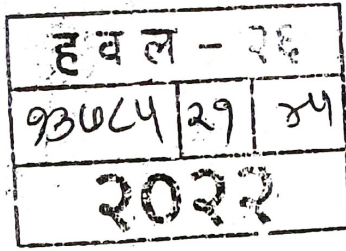 हवल - २६
१३७८५ २१ ४५
२०२२